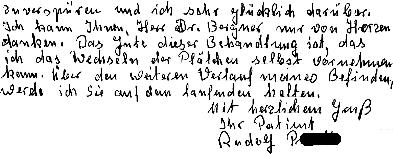 zuverspüren und ich sehr glücklich darüber.
Ich kann Ihnen, Herr Dr. Bergner nur von Herzen
danken. Das Gute dieser Behandlung ist, das
ich das Wechseln der Pflästchen selbst vornehmen
kann. Über den weiteren Verlauf meines Befinden,
werde ich Sie auf den laufenden halten.
Mit herzlichem Gruß
Ihr Patient
Rudolf P